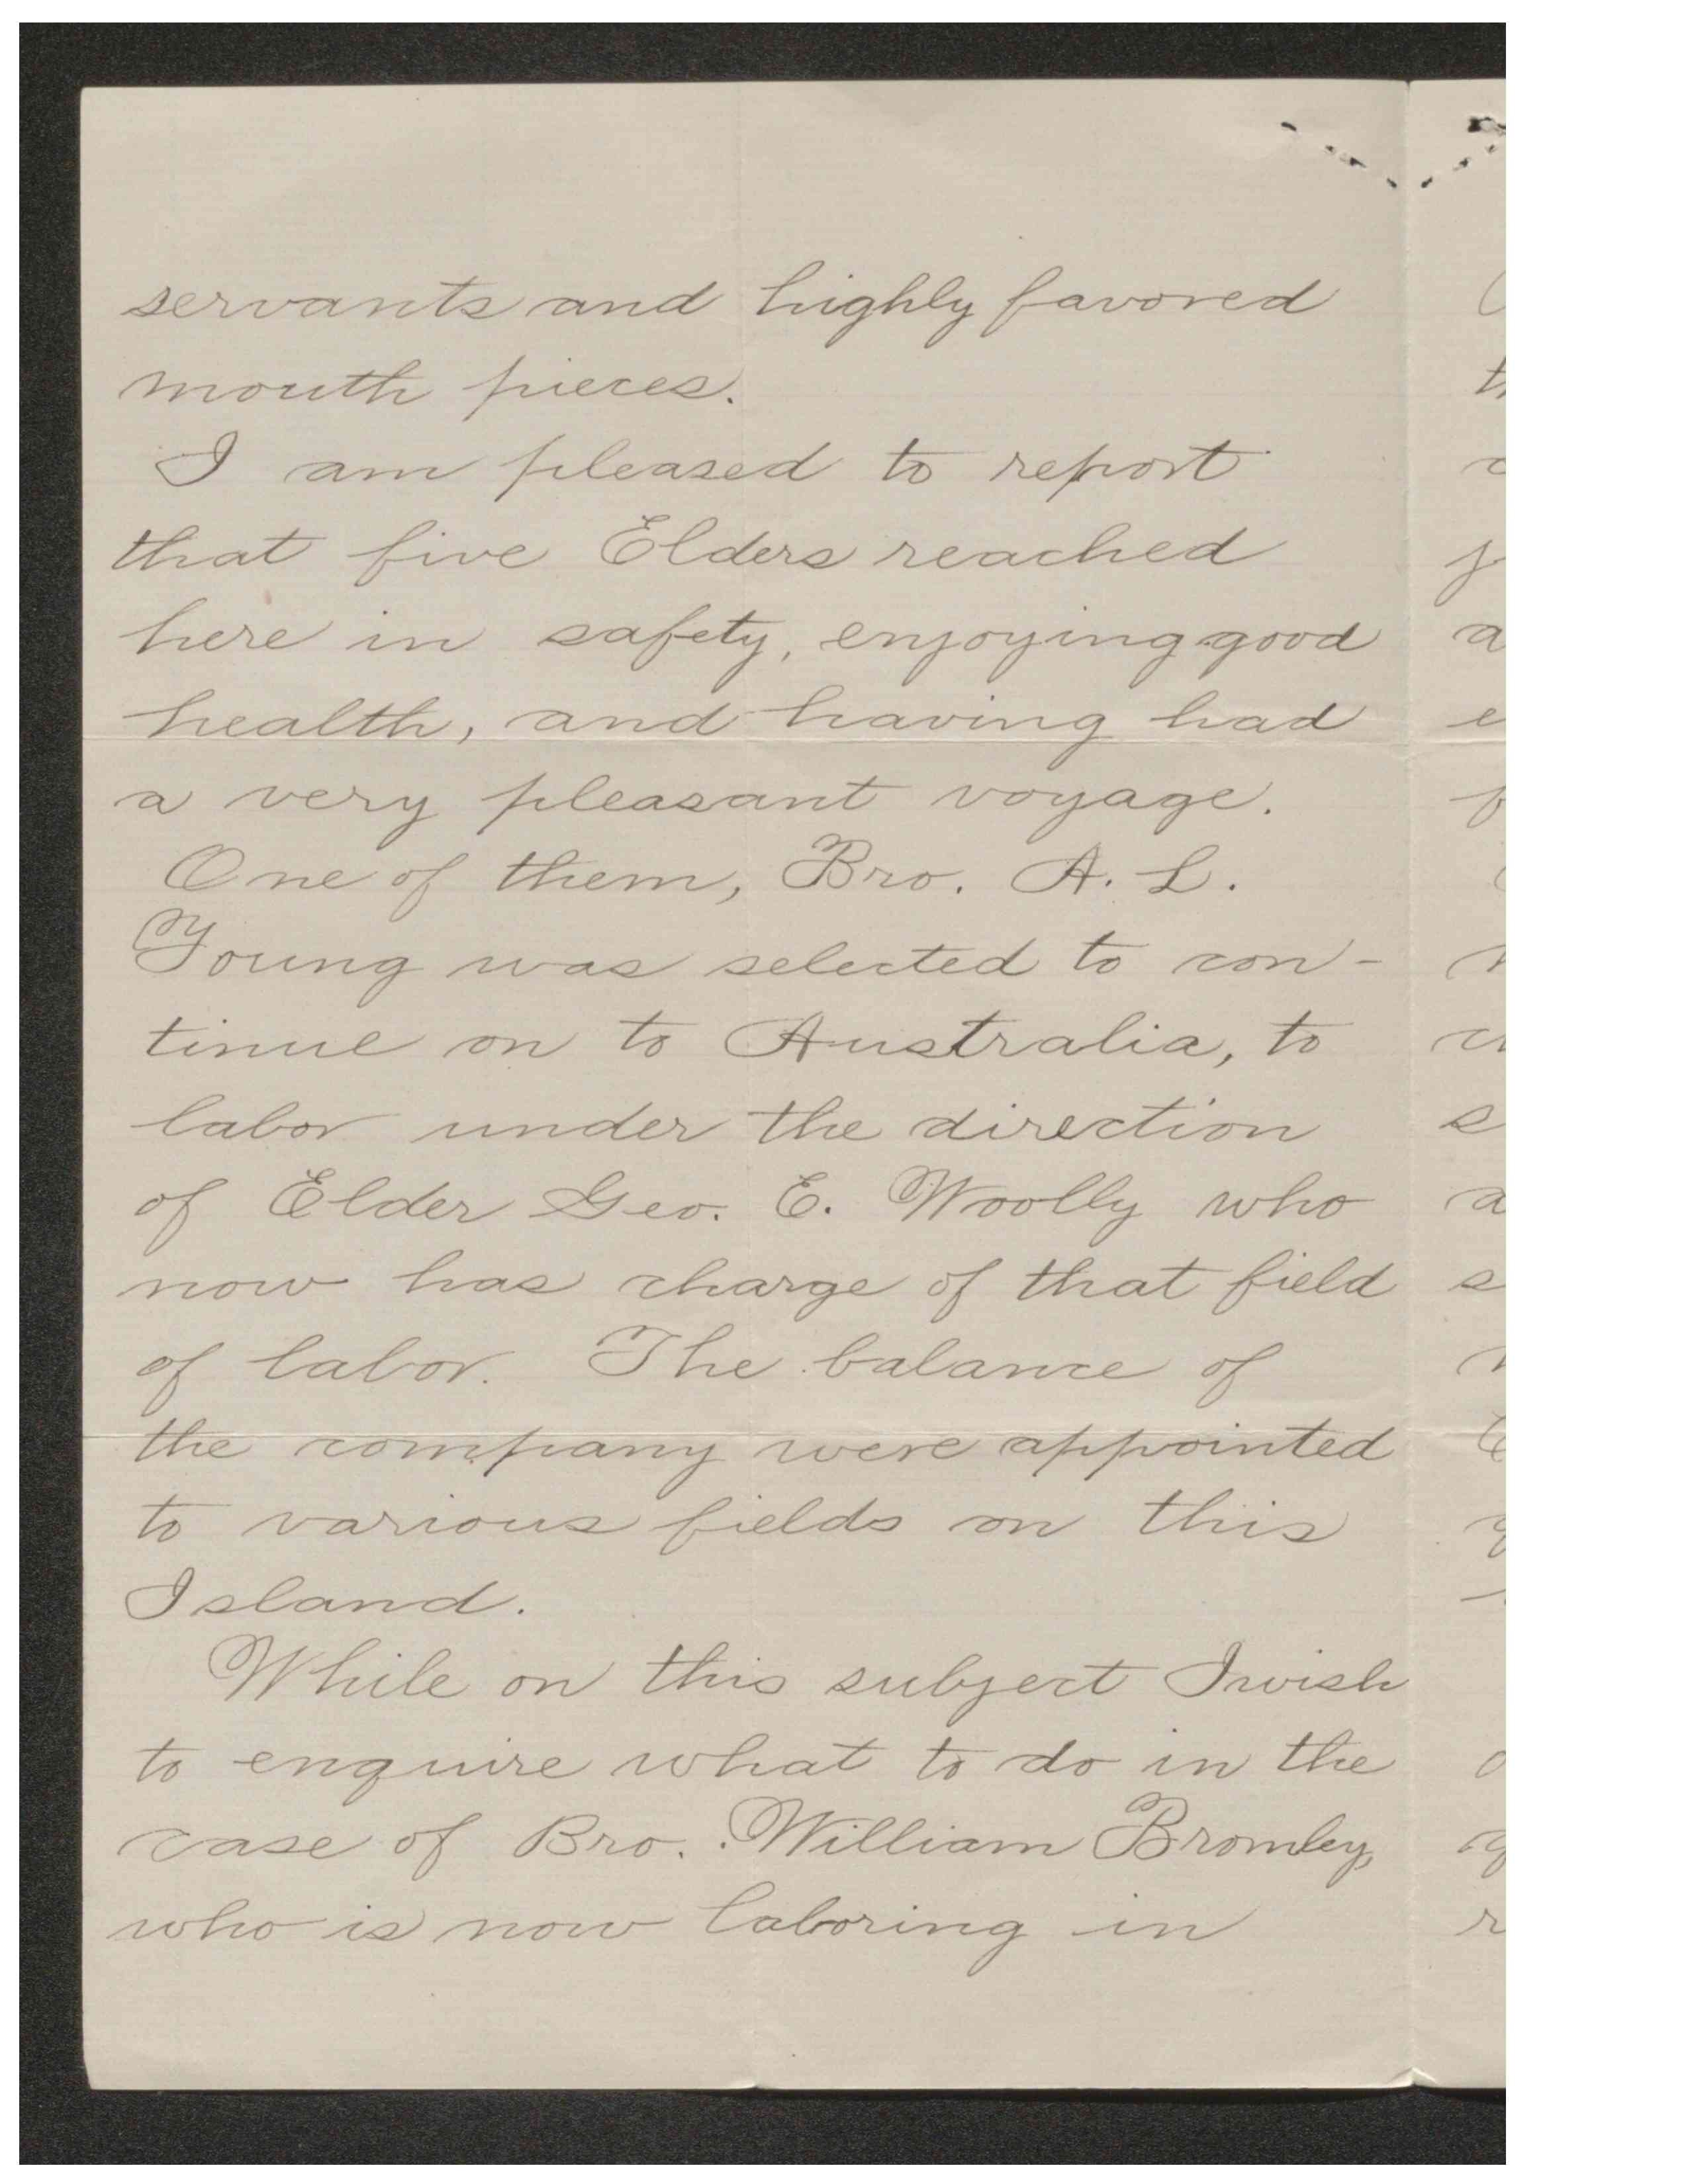 servants and highly favored
mouth pieces.
I am pleased to report
that five Elders reached
here in safety, enjoying good
health, and having had
a very pleasant voyage.
One of them, Bro. A. L.
Young was selected to con-
tinue on to Australia, to
labor under the direction
of Elder Geo. E. Woolly who
now has charge of that field
of labor. The balance of
the company were appointed
to various fields on this
Island.
While on this subject I wish
to enquire what to do in the
case of Bro. William Bromley,
who is now laboring in